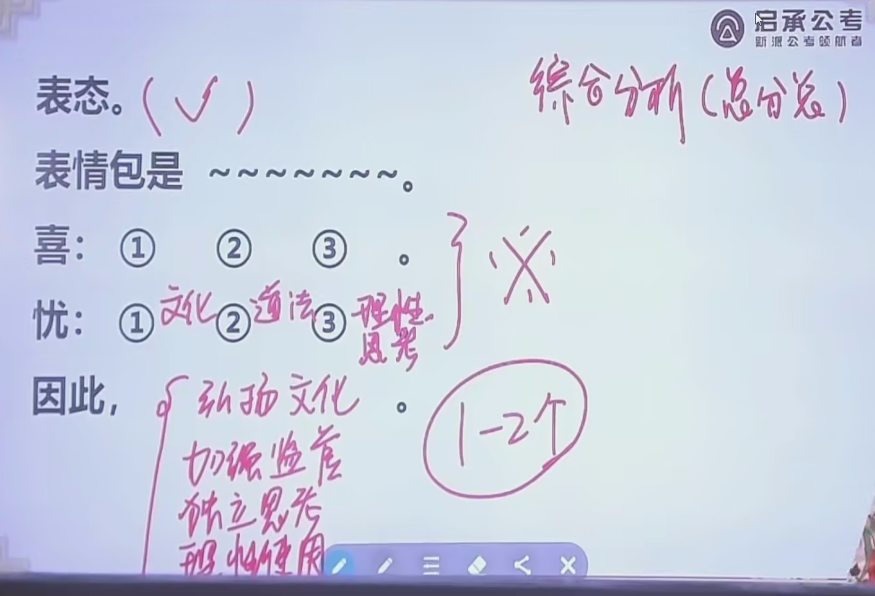 启承公考
新派公考领航者
综合分析(总分总)
表态。(✓)
表情包是 ~~~~~~~。
喜: ① ② ③ 。
忧: ①文化②道法③理性思考
因此, 弘扬文化 。
1-2个
加强监管
独立思考
理性使用